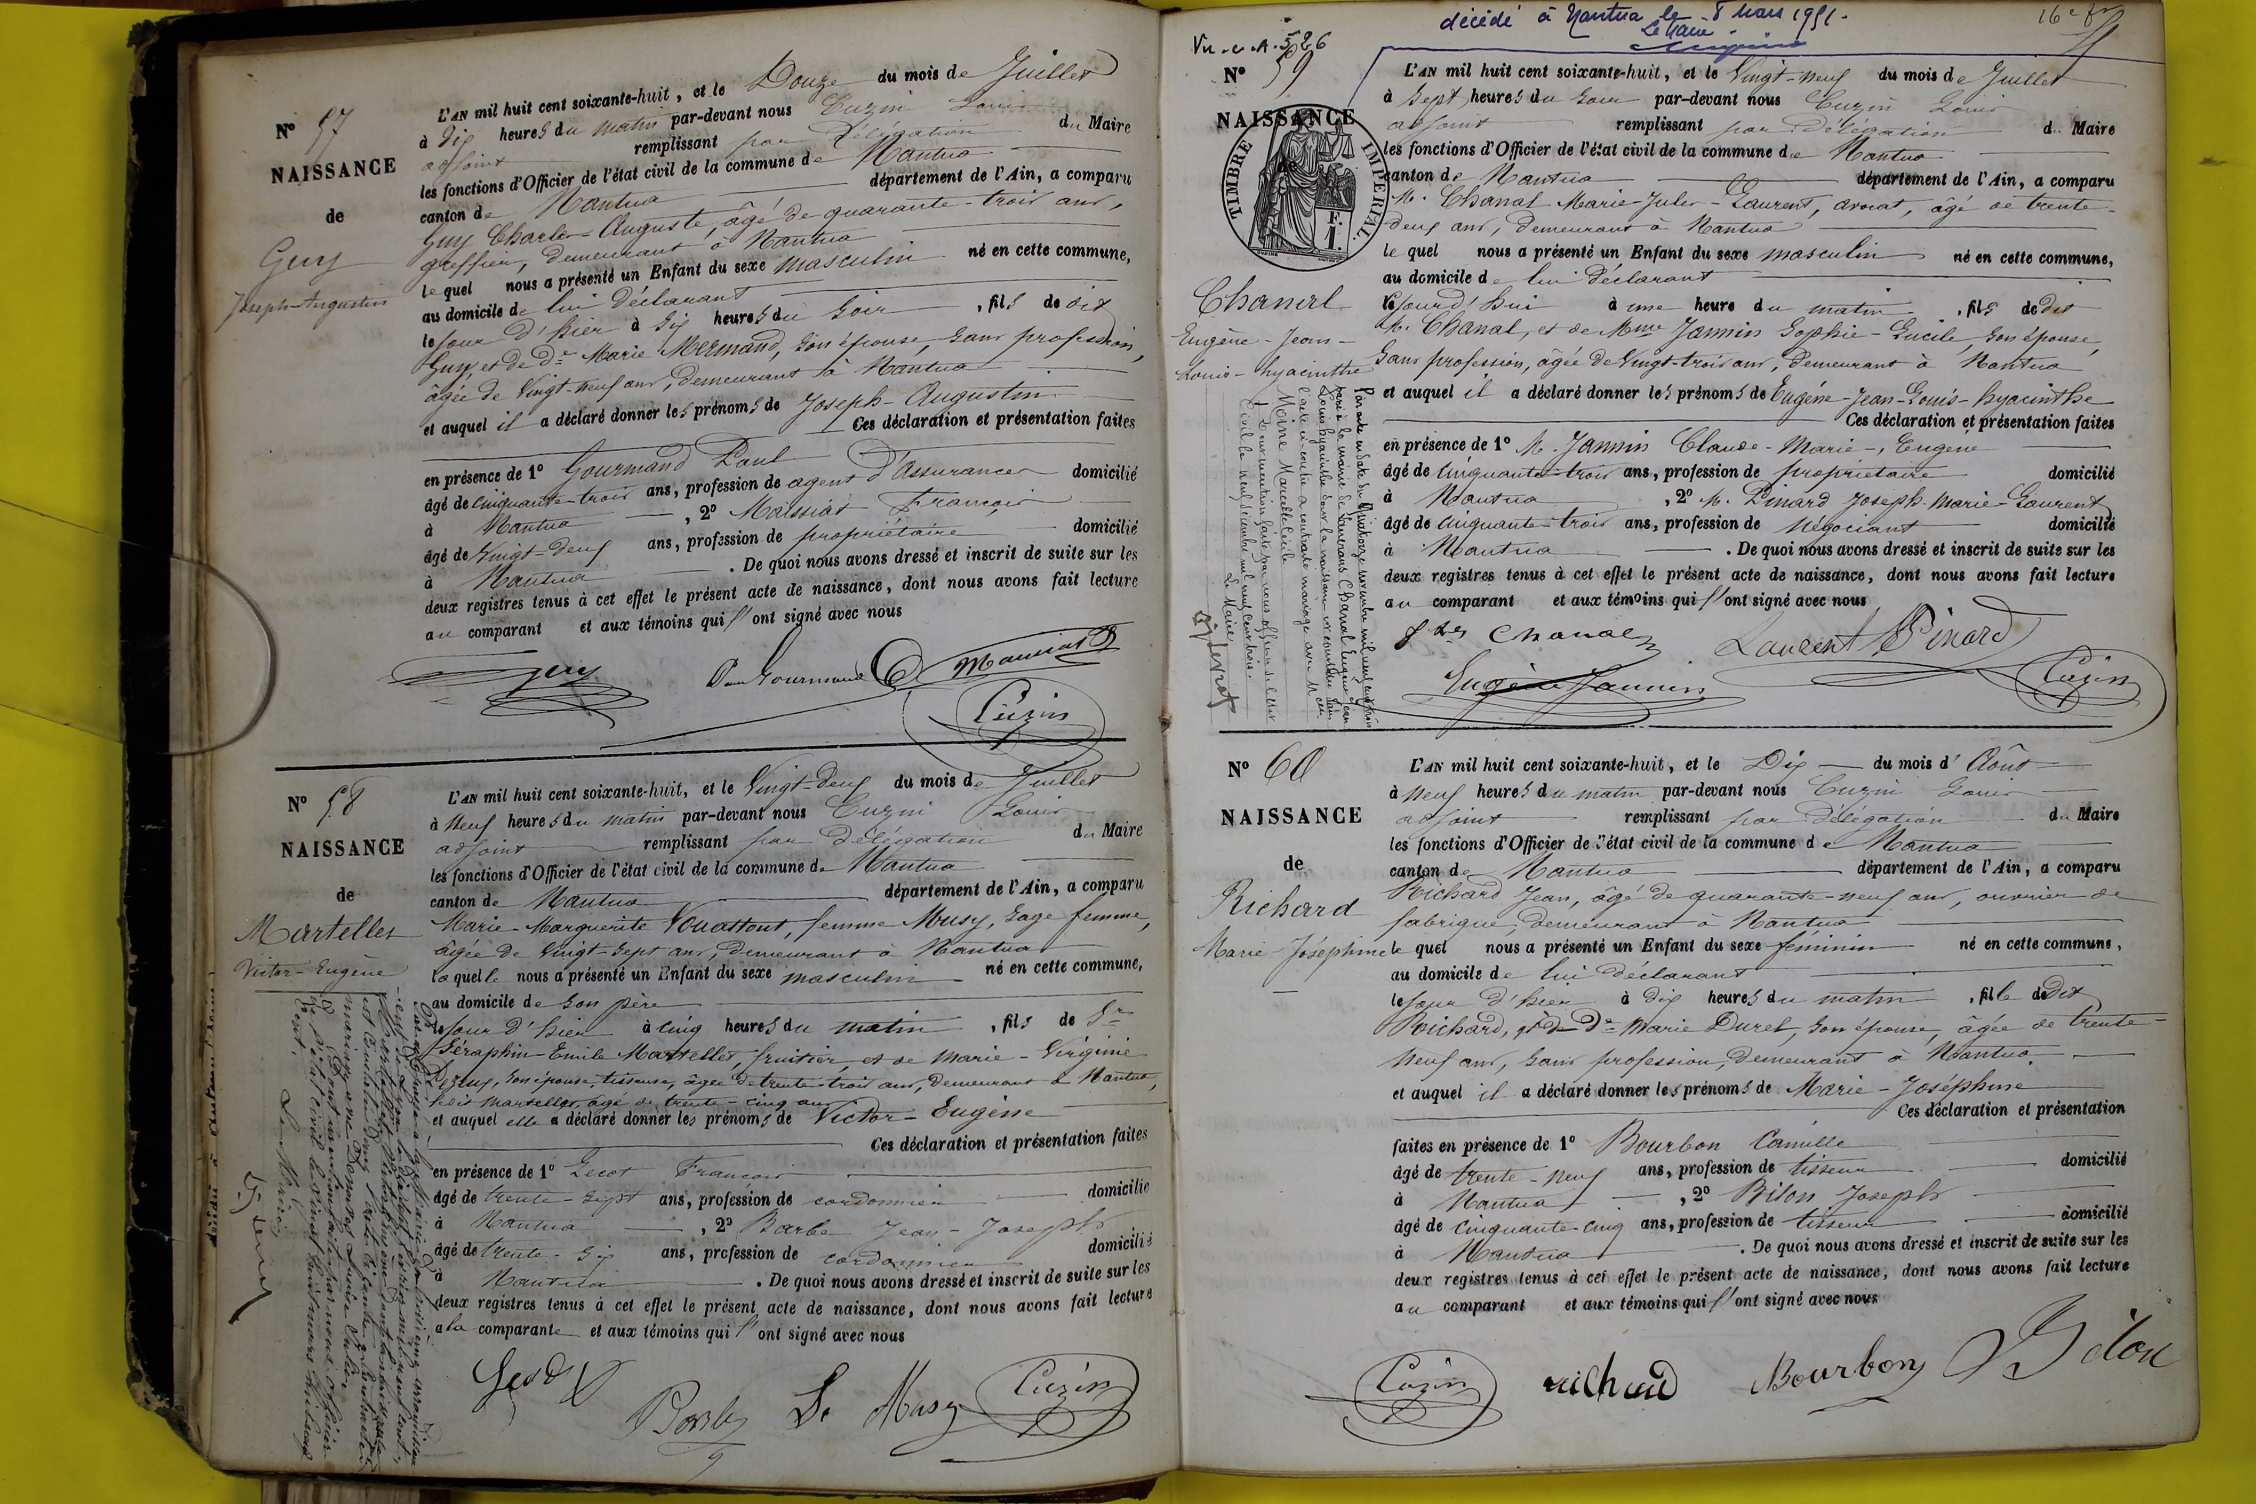 N° 57
NAISSANCE
de
Guy
Joseph-Augustin
L'AN mil huit cent soixante-huit, et le Douze du mois de Juillet
à dix heures du matin par-devant nous Cuzin Louis
adjoint remplissant par délégation du Maire
les fonctions d'Officier de l'état civil de la commune de Nantua
canton de Nantua département de l'Ain, a comparu
Guy Charles-Auguste, âgé de quarante-trois ans,
greffier, demeurant à Nantua
le quel nous a présenté un Enfant du sexe masculin né en cette commune,
au domicile de lui déclarant
le jour d'hier à six heures du soir, fils de dit
Guy et de de Marie Mermand, son épouse, sans profession,
âgée de vingt-neuf ans, demeurant à Nantua
et auquel il a déclaré donner les prénoms de Joseph-Augustin
Ces déclaration et présentation faites
en présence de 1° Gourmand Paul
âgé de cinquante-trois ans, profession de agent d'Assurances domicilié
à Nantua, 2° Maissiat François
âgé de vingt-deux ans, profession de propriétaire domicilié
à Nantua. De quoi nous avons dressé et inscrit de suite sur les
deux registres tenus à cet effet le présent acte de naissance, dont nous avons fait lecture
au comparant et aux témoins qui l'ont signé avec nous
Guy Paul Gourmand Maissiat
Cuzin
N° 58
NAISSANCE
de
Martellet
Victor-Eugène
L'AN mil huit cent soixante-huit, et le vingt-deux du mois de Juillet
à neuf heures du matin par-devant nous Cuzin Louis
adjoint remplissant par délégation du Maire
les fonctions d'Officier de l'état civil de la commune de Nantua
canton de Nantua département de l'Ain, a comparu
Marie-Marguerite Vouattout, femme Musy, sage femme,
âgée de vingt-sept ans, demeurant à Nantua
laquelle nous a présenté un Enfant du sexe masculin né en cette commune,
au domicile de son père
le jour d'hier à cinq heures du matin, fils de Sr
Séraphin-Emile Martellet, fruitier, et de Marie-Virginie
son épouse, tisseuse, âgée de trente-trois ans, demeurant à Nantua,
Martellet, âgé de trente-cinq ans
et auquel elle a déclaré donner les prénoms de Victor-Eugène
Ces déclaration et présentation faites
en présence de 1° Lecot François
âgé de trente-sept ans, profession de cordonnier domicilié
à Nantua, 2° Barbe Jean-Joseph
âgé de trente-six ans, profession de cordonnier domicilié
à Nantua. De quoi nous avons dressé et inscrit de suite sur les
deux registres tenus à cet effet le présent acte de naissance, dont nous avons fait lecture
a la comparante et aux témoins qui l'ont signé avec nous
Barbe Musy Cuzin
Le Maire
décédé à Nantua le 8 Mars 1951.
Le Maire
Vu.c.A. 526
16e
N° 59
NAISSANCE
de
TIMBRE IMPÉRIAL
F.
1.
Chanal
Eugène-Jean-
Louis-hyacinthe
L'AN mil huit cent soixante-huit, et le vingt-neuf du mois de Juillet
à sept heures du soir par-devant nous Cuzin Louis
adjoint remplissant par délégation du Maire
les fonctions d'Officier de l'état civil de la commune de Nantua
canton de Nantua département de l'Ain, a comparu
M. Chanal Marie-Jules-Laurent, avocat, âgé de trente-
deux ans, demeurant à Nantua
le quel nous a présenté un Enfant du sexe masculin né en cette commune,
au domicile de lui déclarant
cejourd'hui à une heure du matin, fils de dit
M. Chanal, et de Mme Jannin Sophie-Lucile, son épouse,
sans profession, âgée de vingt-trois ans, demeurant à Nantua
et auquel il a déclaré donner les prénoms de Eugène-Jean-Louis-hyacinthe
Ces déclaration et présentation faites
en présence de 1° M. Jannin Claude-Marie-, Eugène
âgé de cinquante-trois ans, profession de propriétaire domicilié
à Nantua, 2° M. Pinard Joseph-Marie-Laurent
âgé de cinquante-trois ans, profession de négociant domicilié
à Nantua. De quoi nous avons dressé et inscrit de suite sur les
deux registres tenus à cet effet le présent acte de naissance, dont nous avons fait lecture
au comparant et aux témoins qui l'ont signé avec nous
Jles Chanal Laurent Pinard
Eugène Jannin Cuzin
Moine Marcelle
Le Maire
N° 60
NAISSANCE
de
Richard
Marie-Joséphine
L'AN mil huit cent soixante-huit, et le Dix du mois d'Août
à neuf heures du matin par-devant nous Cuzin Louis
adjoint remplissant par délégation du Maire
les fonctions d'Officier de l'état civil de la commune de Nantua
canton de Nantua département de l'Ain, a comparu
Richard Jean, âgé de quarante-neuf ans, ouvrier de
fabrique, demeurant à Nantua
le quel nous a présenté un Enfant du sexe féminin né en cette commune,
au domicile de lui déclarant
le jour d'hier à dix heures du matin, fille de dit
Richard, et de de Marie Duret, son épouse, âgée de trente-
neuf ans, sans profession, demeurant à Nantua.
et auquel il a déclaré donner les prénoms de Marie-Joséphine
Ces déclaration et présentation
faites en présence de 1° Bourbon Camille
âgé de trente-neuf ans, profession de tisseur domicilié
à Nantua, 2° Bilon Joseph
âgé de cinquante-cinq ans, profession de tisseur domicilié
à Nantua. De quoi nous avons dressé et inscrit de suite sur les
deux registres tenus à cet effet le présent acte de naissance, dont nous avons fait lecture
au comparant et aux témoins qui l'ont signé avec nous
Cuzin richard Bourbon Bilon